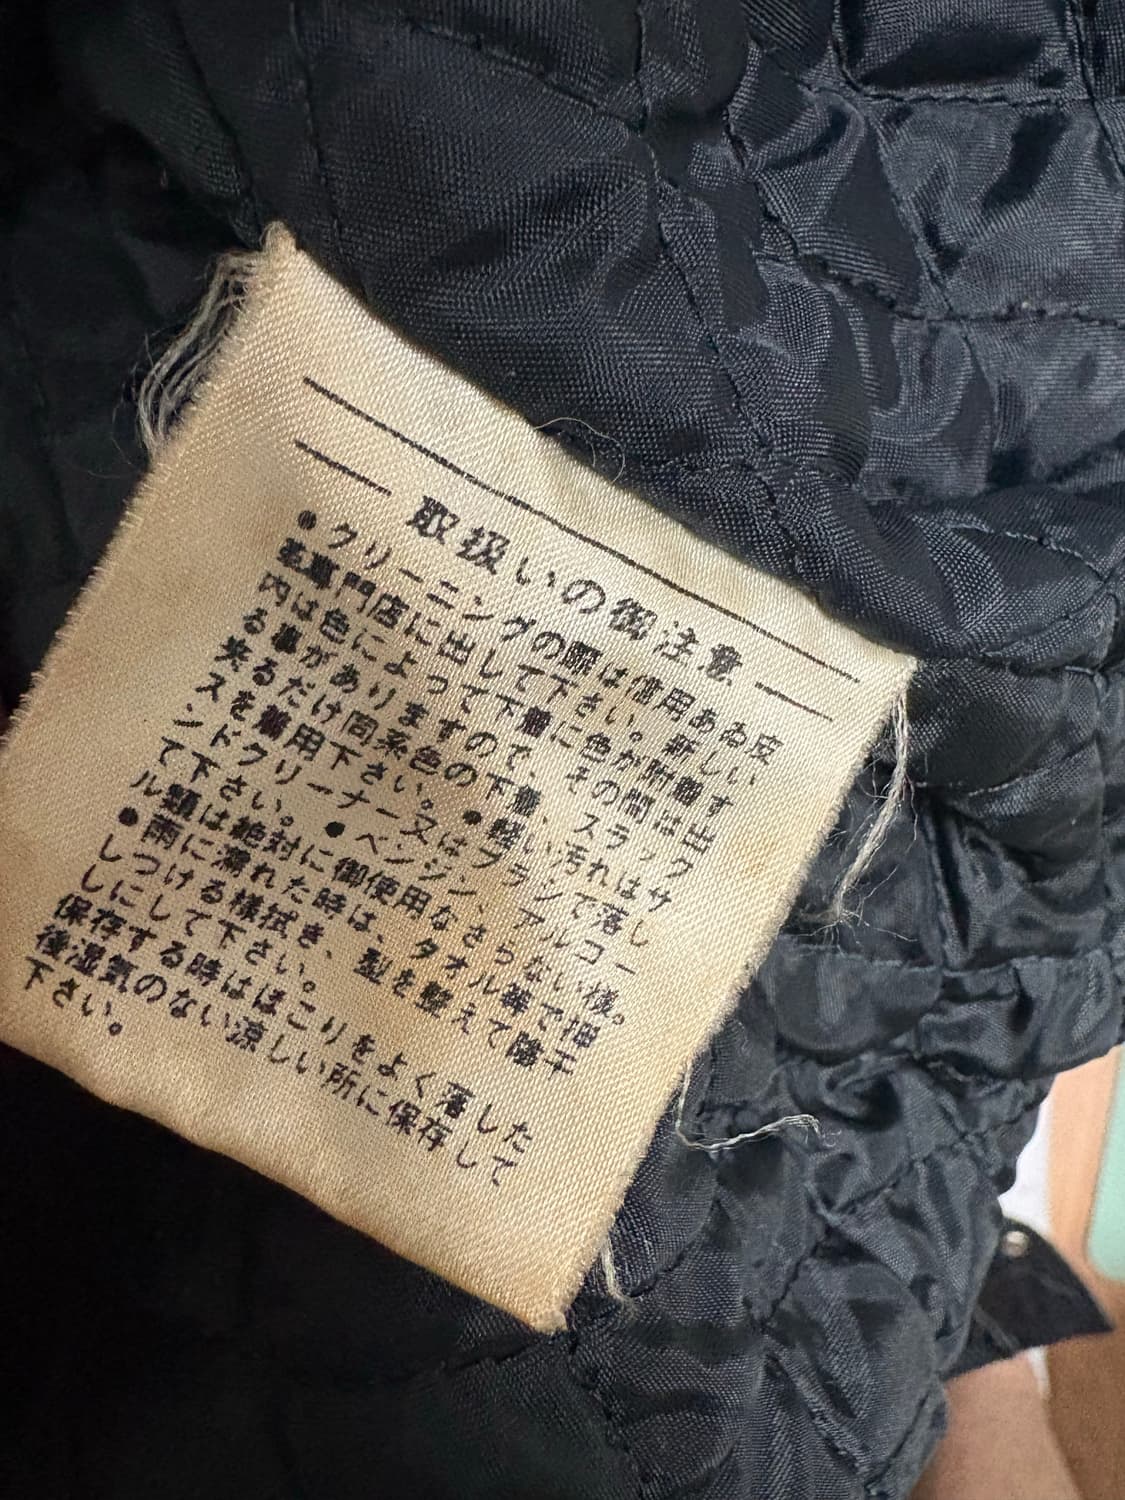 取扱いの御注意
●クリーニングの際は信用ある皮
革専門店に出して下さい。新しい
内は色によって下着に色が附着す
る事がありますので、その間は出
来るだけ同系色の下着、スラック
スを着用下さい。●軽い汚れはサ
ンドクリーナー又はブラシで落し
て下さい。●ベンジン、アルコー
ル類は絶対に御使用なさらない様。
●雨に濡れた時は、タオル等で押
しつける様拭き、型を整えて陰干
しにして下さい。
保存する時はほこりをよく落した
後湿気のない涼しい所に保存して
下さい。